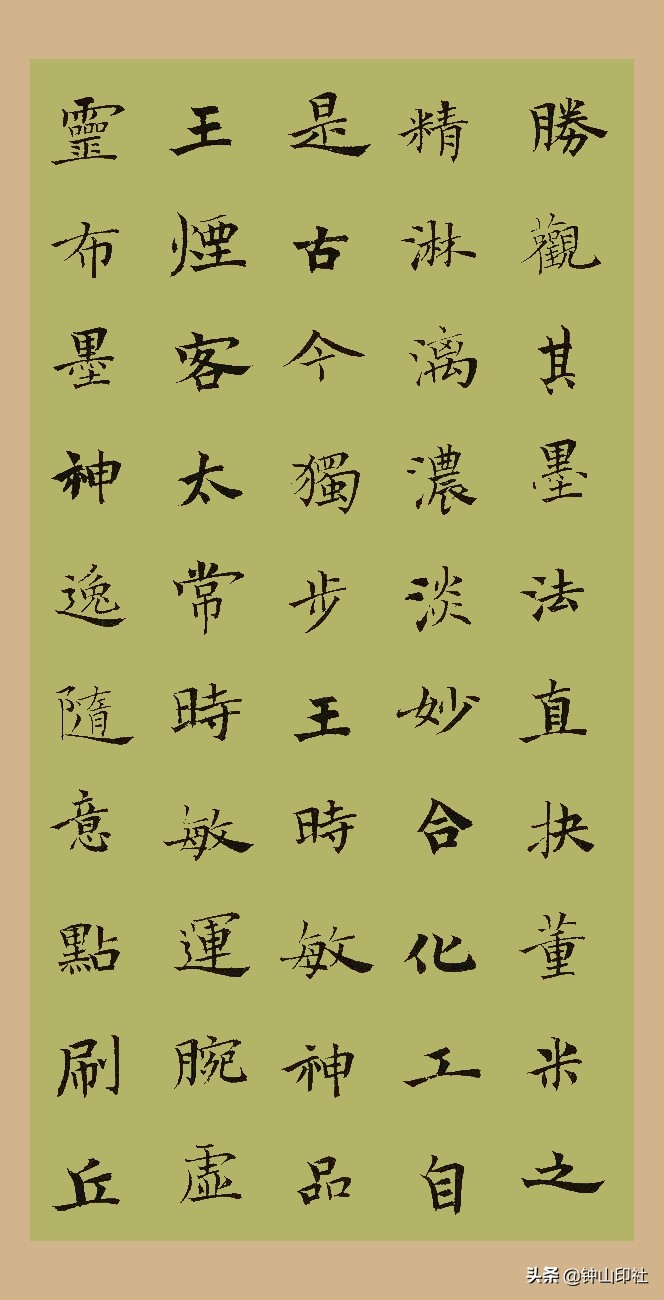 勝觀其墨法直抉董米之
精淋漓濃淡妙合化工自
是古今獨步王時敏神品
王煙客太常時敏運腕虛
靈布墨神逸隨意點刷丘
头条 @钟山印社